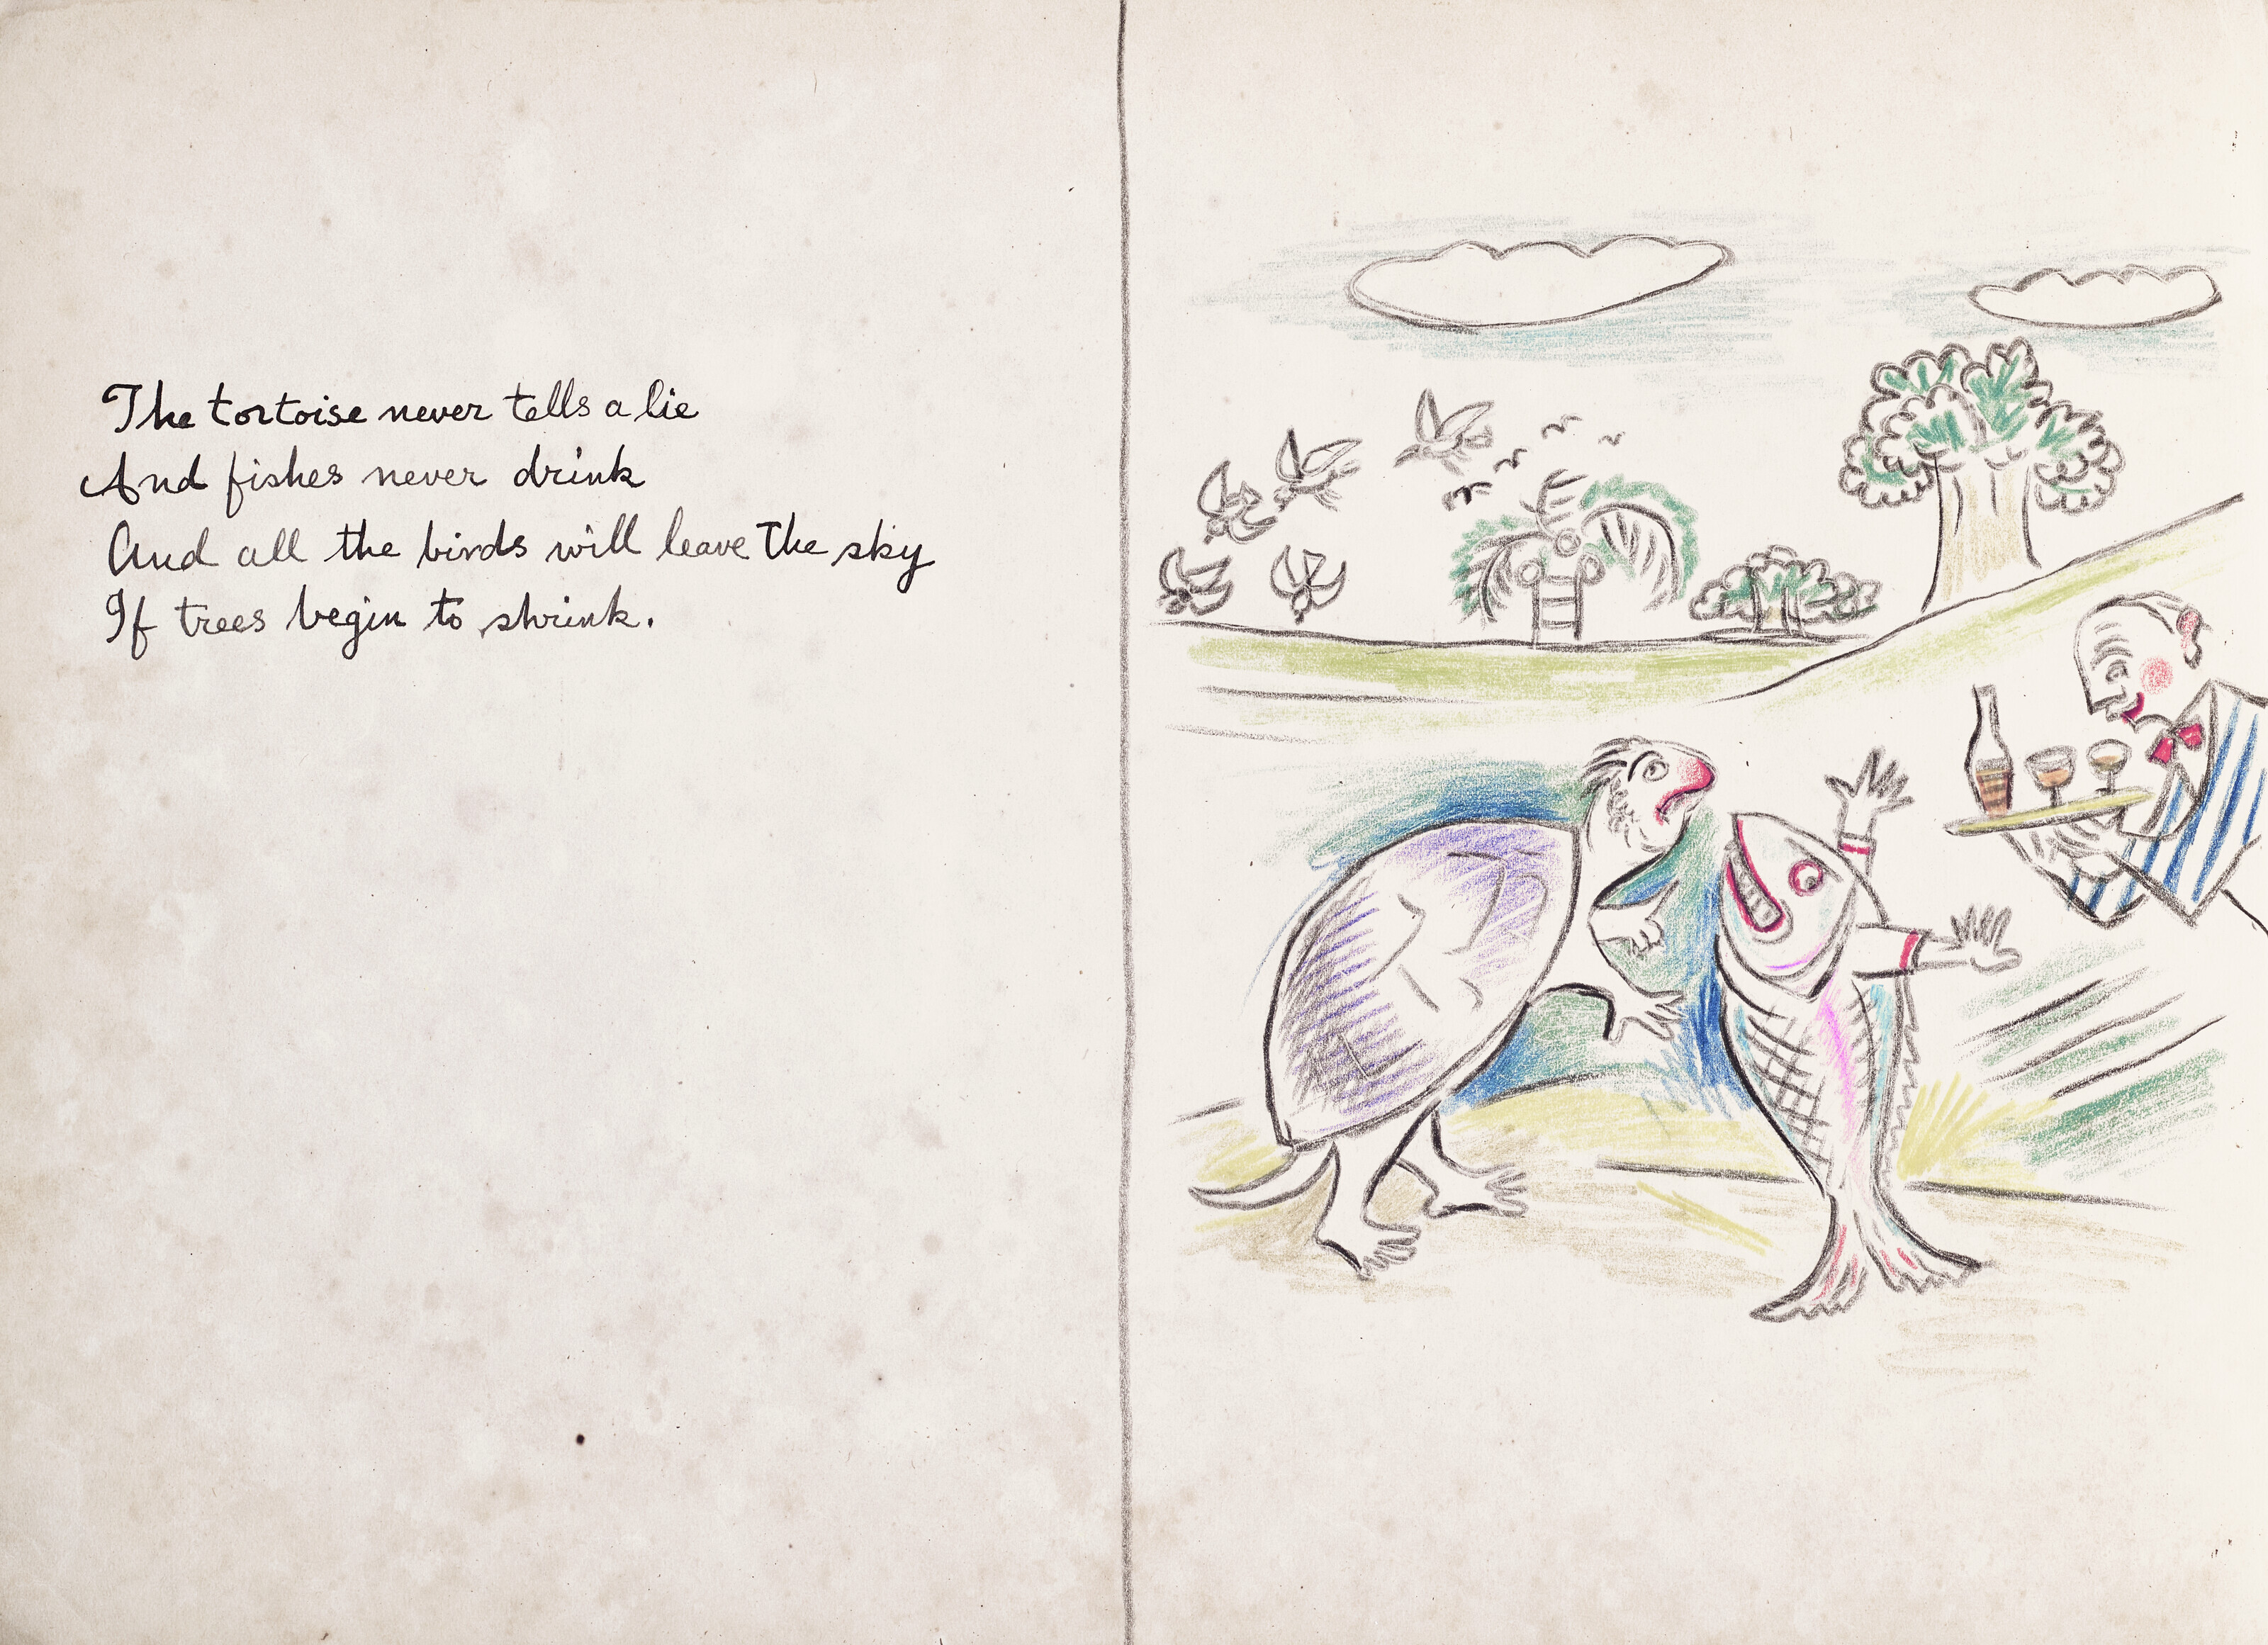 The tortoise never tells a lie
And fishes never drink
And all the birds will leave the sky
If trees begin to shrink.